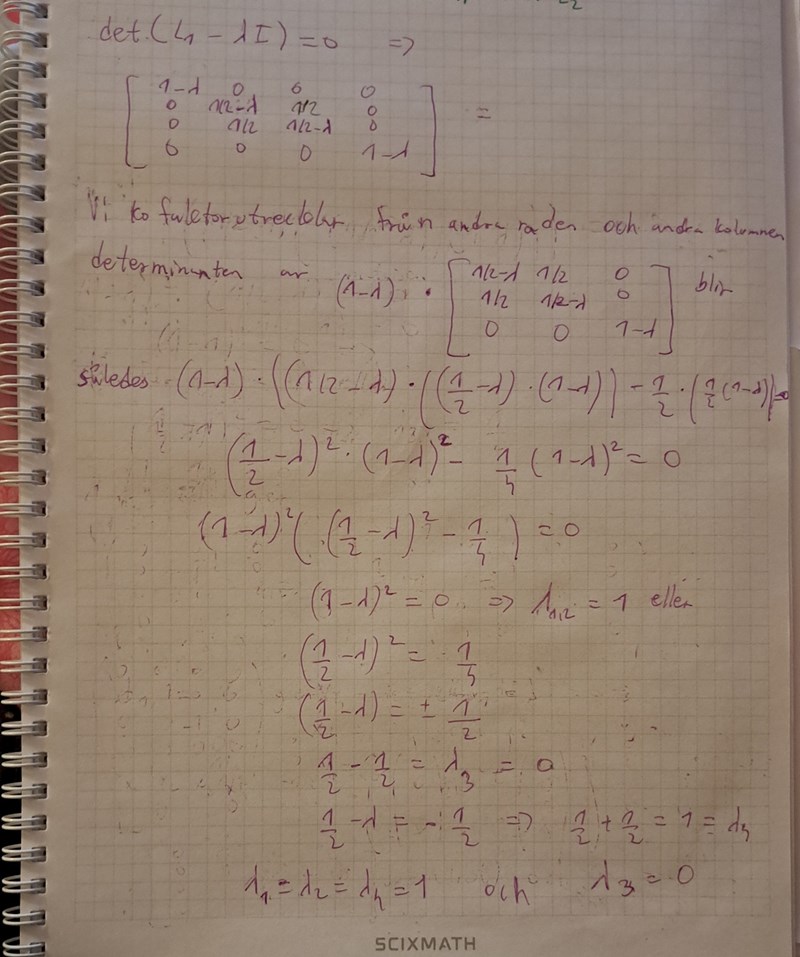 det.(L₁ - λI) = 0 =>
[ 1-λ 0 0 0
0 1/2-λ 1/2 0
0 1/2 1/2-λ 0
0 0 0 1-λ ] =
Vi från andra raden och andra kolumnen
determinanten är (1-λ) · [ 1/2-λ 1/2 0
1/2 1/2-λ 0
0 0 1-λ ] blir
således (1-λ) · ((1/2-λ) · ((1/2-λ) · (1-λ)) - 1/2 · (1/2(1-λ))=0
(1/2-λ)² · (1-λ)² - 1/4 (1-λ)² = 0
(1-λ)² ((1/2-λ)² - 1/4) = 0
(1-λ)² = 0 => λ₁,₂ = 1 eller
(1/2-λ)² = 1/4
(1/2-λ) = ± 1/2
1/2 - 1/2 = λ₃ = 0
1/2 - λ = - 1/2 => 1/2 + 1/2 = 1 = λ₄
λ₁ = λ₂ = λ₄ = 1 och λ₃ = 0
SCIXMATH